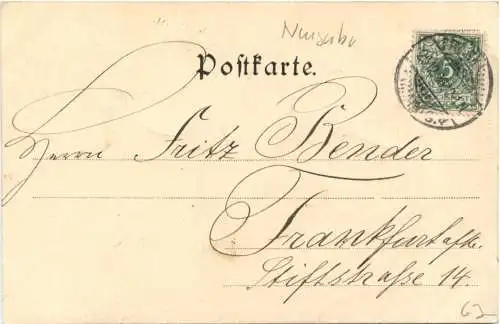 Postkarte.
5
Herrn Fritz Bender
Frankfurt a/M.
Stiftstraße 14.
62